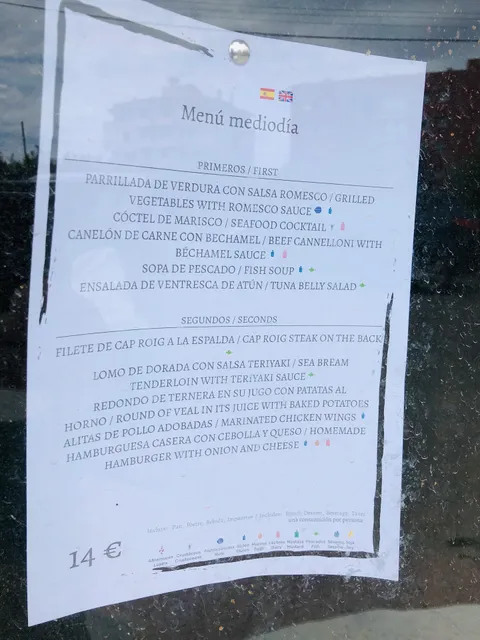 Menú mediodía
PRIMEROS / FIRST
PARRILLADA DE VERDURA CON SALSA ROMESCO / GRILLED
VEGETABLES WITH ROMESCO SAUCE
CÓCTEL DE MARISCO / SEAFOOD COCKTAIL
CANELÓN DE CARNE CON BECHAMEL / BEEF CANNELLONI WITH
BÉCHAMEL SAUCE
SOPA DE PESCADO / FISH SOUP
ENSALADA DE VENTRESCA DE ATÚN / TUNA BELLY SALAD
SEGUNDOS / SECONDS
FILETE DE CAP ROIG A LA ESPALDA / CAP ROIG STEAK ON THE BACK
LOMO DE DORADA CON SALSA TERIYAKI / SEA BREAM
TENDERLOIN WITH TERIYAKI SAUCE
REDONDO DE TERNERA EN SU JUGO CON PATATAS AL
HORNO / ROUND OF VEAL IN ITS JUICE WITH BAKED POTATOES
ALITAS DE POLLO ADOBADAS / MARINATED CHICKEN WINGS
HAMBURGUESA CASERA CON CEBOLLA Y QUESO / HOMEMADE
HAMBURGER WITH ONION AND CHEESE
una consumición por persona
14 €